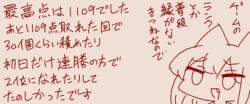 最高点は1109でした
あと109点取れた回で
30個くらい積めたり
初日だけ連勝の方で
2位になれたりして
たのしかったです
ゲームの
ランクとか
普段
縁がない
きつねなので